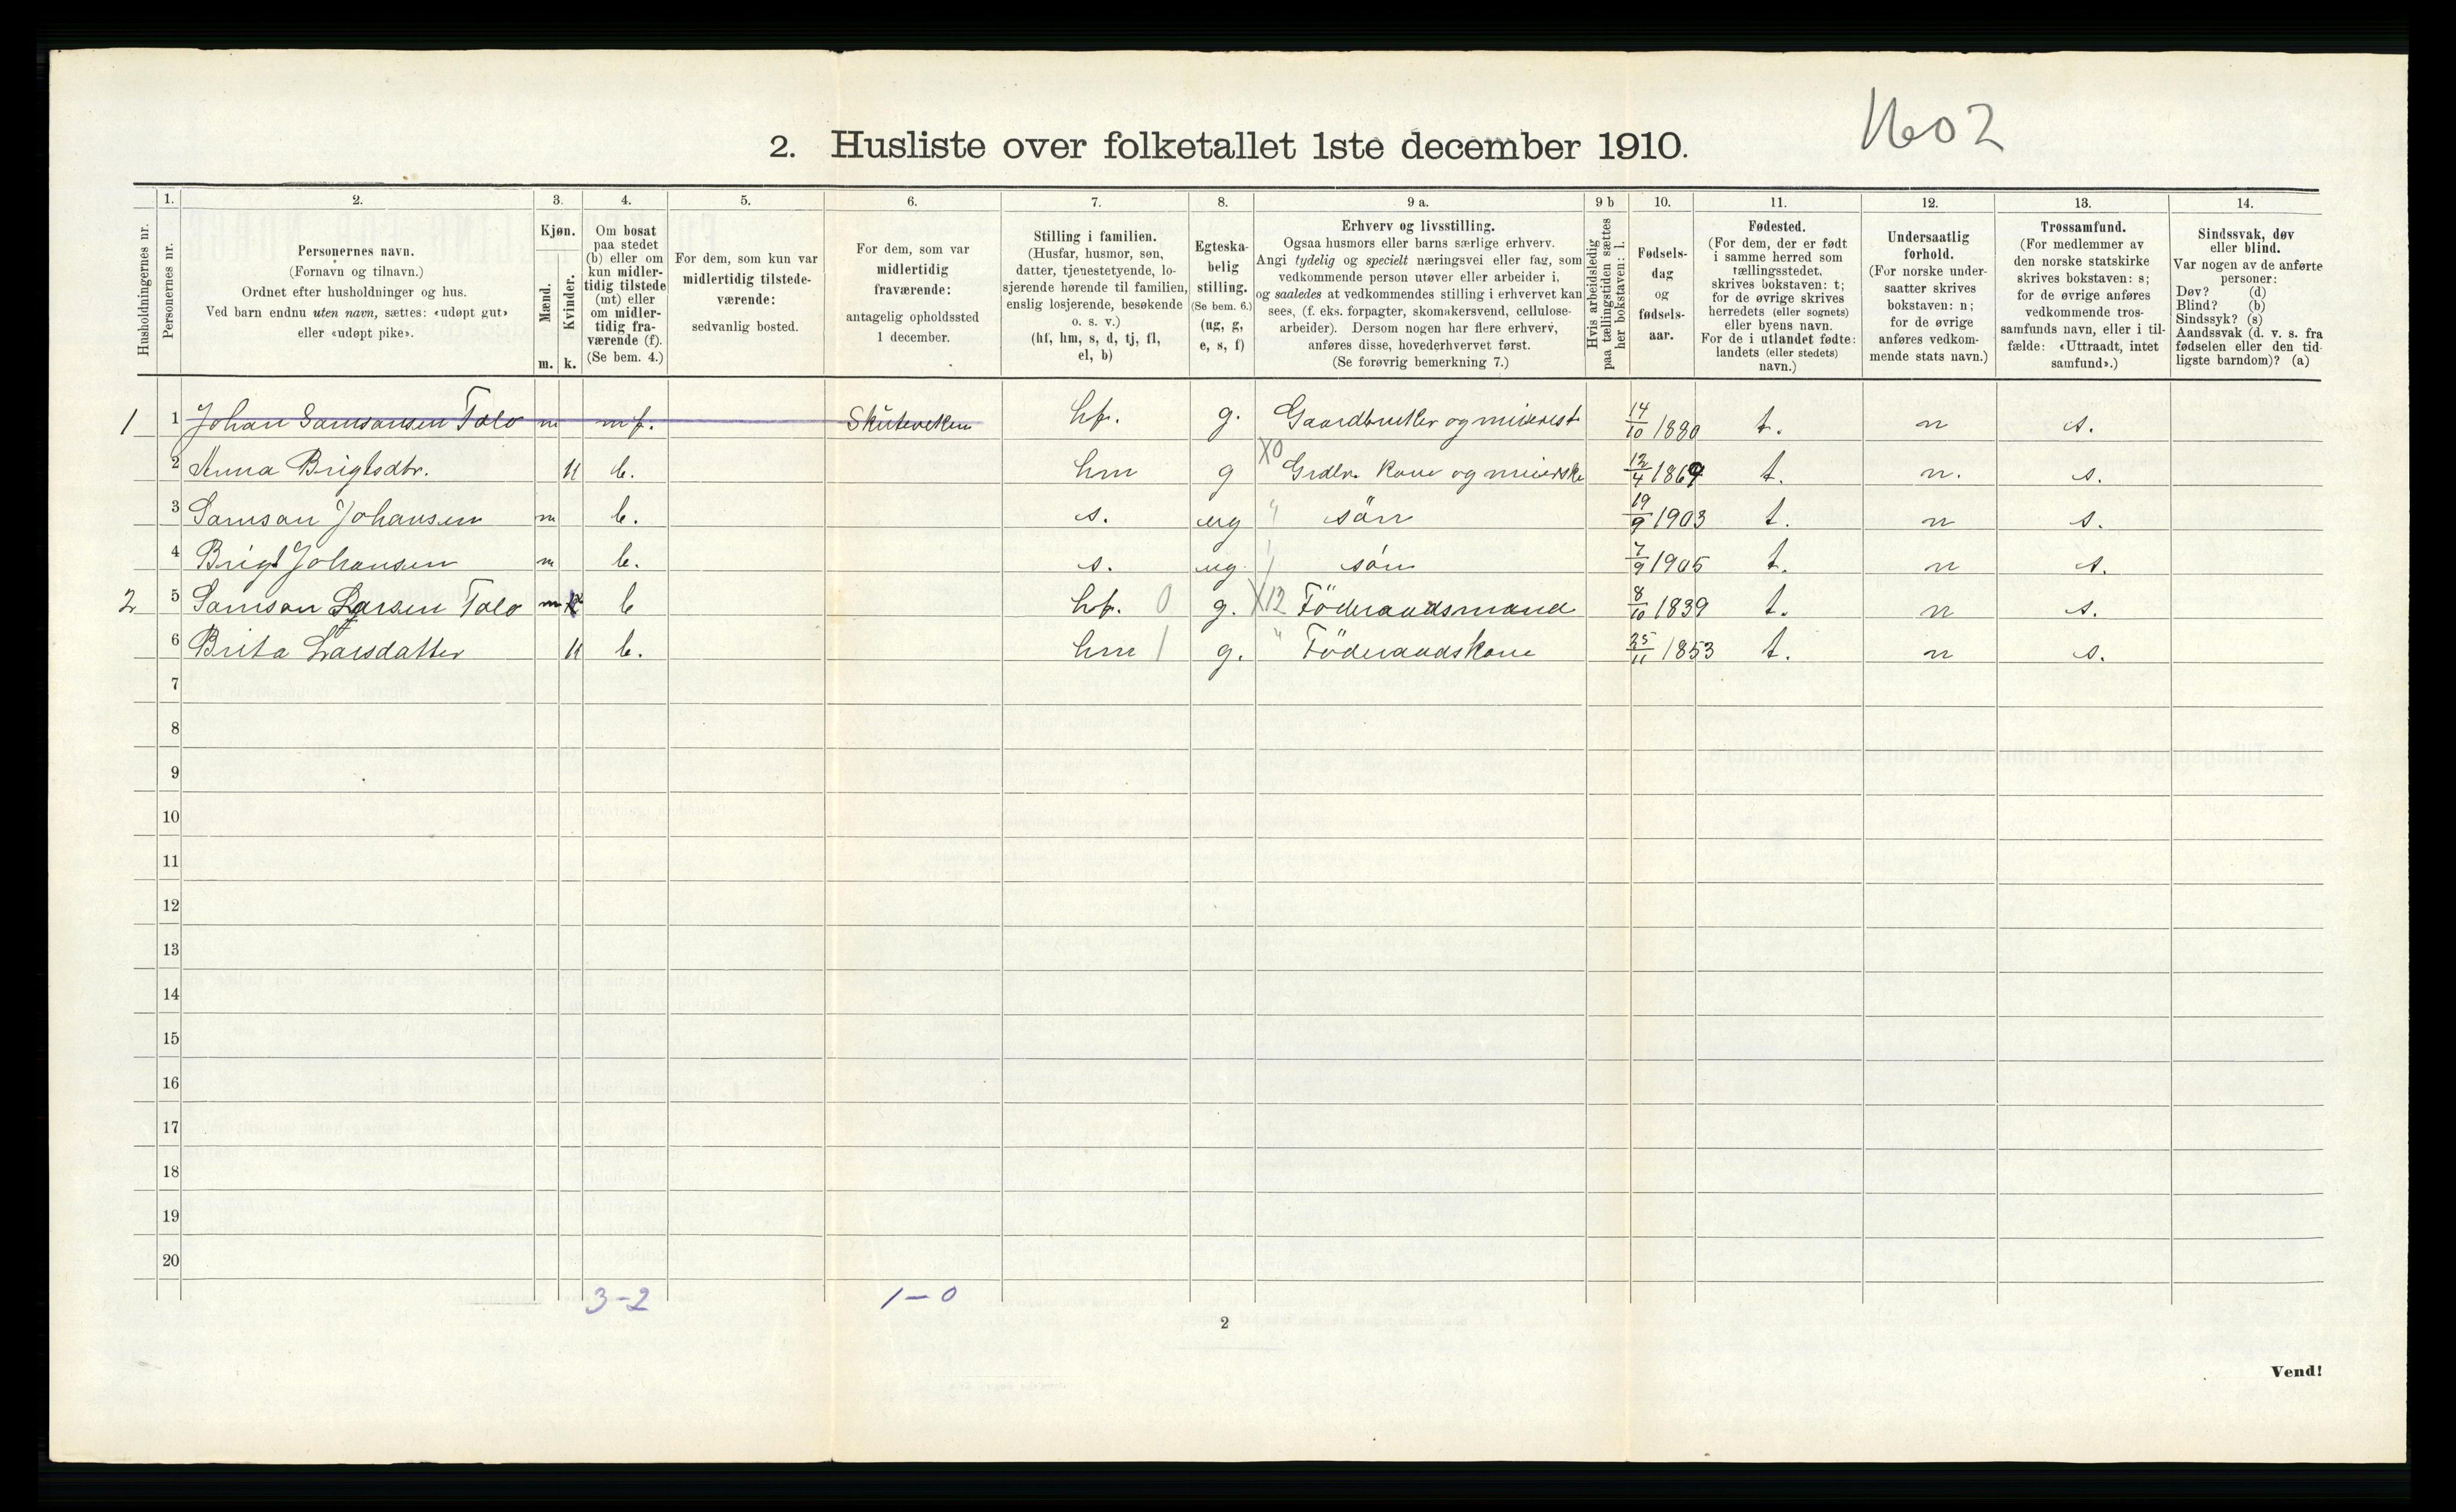 1602
2. Husliste over folketallet 1ste december 1910.
Husholdningernes nr.
1. Personernes nr.
2. Personernes navn.
(Fornavn og tilnavn.)
Ordnet efter husholdninger og hus.
Ved barn endnu uten navn, sættes: «udøpt gut»
eller «udøpt pike».
3. Kjøn.
Mænd. Kvinder.
m. k.
4. Om bosat
paa stedet
(b) eller om
kun midler-
tidig tilstede
(mt) eller
om midler-
tidig fra-
værende (f).
(Se bem. 4.)
5. For dem, som kun var
midlertidig tilstede-
værende:
sedvanlig bosted.
6. For dem, som var
midlertidig
fraværende:
antagelig opholdssted
1 december.
7. Stilling i familien.
(Husfar, husmor, søn,
datter, tjenestetyende, lo-
sjerende hørende til familien,
enslig losjerende, besøkende
o. s. v.)
(hf, hm, s, d, tj, fl,
el, b)
8. Egteska-
belig
stilling.
(Se bem. 6.)
(ug, g,
e, s, f)
9 a. Erhverv og livsstilling.
Ogsaa husmors eller barns særlige erhverv.
Angi tydelig og specielt næringsvei eller fag, som
vedkommende person utøver eller arbeider i,
og saaledes at vedkommendes stilling i erhvervet kan
sees, (f. eks. forpagter, skomakersvend, cellulose-
arbeider). Dersom nogen har flere erhverv,
anføres disse, hovederhvervet først.
(Se forøvrig bemerkning 7.)
9 b Hvis arbeidsledig
paa tællingstiden sættes
her bokstaven: l.
10. Fødsels-
dag
og
fødsels-
aar.
11. Fødested.
(For dem, der er født
i samme herred som
tællingsstedet,
skrives bokstaven: t;
for de øvrige skrives
herredets (eller sognets)
eller byens navn.
For de i utlandet fødte:
landets (eller stedets)
navn.)
12. Undersaatlig
forhold.
(For norske under-
saatter skrives
bokstaven: n;
for de øvrige
anføres vedkom-
mende stats navn.)
13. Trossamfund.
(For medlemmer av
den norske statskirke
skrives bokstaven: s;
for de øvrige anføres
vedkommende tros-
samfunds navn, eller i til-
fælde: «Uttraadt, intet
samfund».)
14. Sindssvak, døv
eller blind.
Var nogen av de anførte
personer:
Døv? (d)
Blind? (b)
Sindssyk? (s)
Aandssvak (d. v. s. fra
fødselen eller den tid-
ligste barndom)? (a)
1 1 Johan Samsonsen Tolo m f. hf. g. Gaardbruker og 14/10 1880 t. n s.
2 Anna Brigtsdtr. k b. hm g X0 Grdbr. kone og 12/4 1869 t. n. s.
3 Samson Johansen m b. s. ug " sön 19/9 1903 t. n s.
4 Brigt Johansen m b. s. ug sön 7/9 1905 t. n s.
2 5 Samson Larsen Tolo m b hf. 0 g. X12 Föderaadsmand 8/10 1839 t. n s.
6 Brita Larsdatter k b. hm 1 g. " Föderaadskone 25/11 1853 t. n s.
7
8
9
10
11
12
13
14
15
16
17
18
19
20
3-2 1-0
2
Vend!